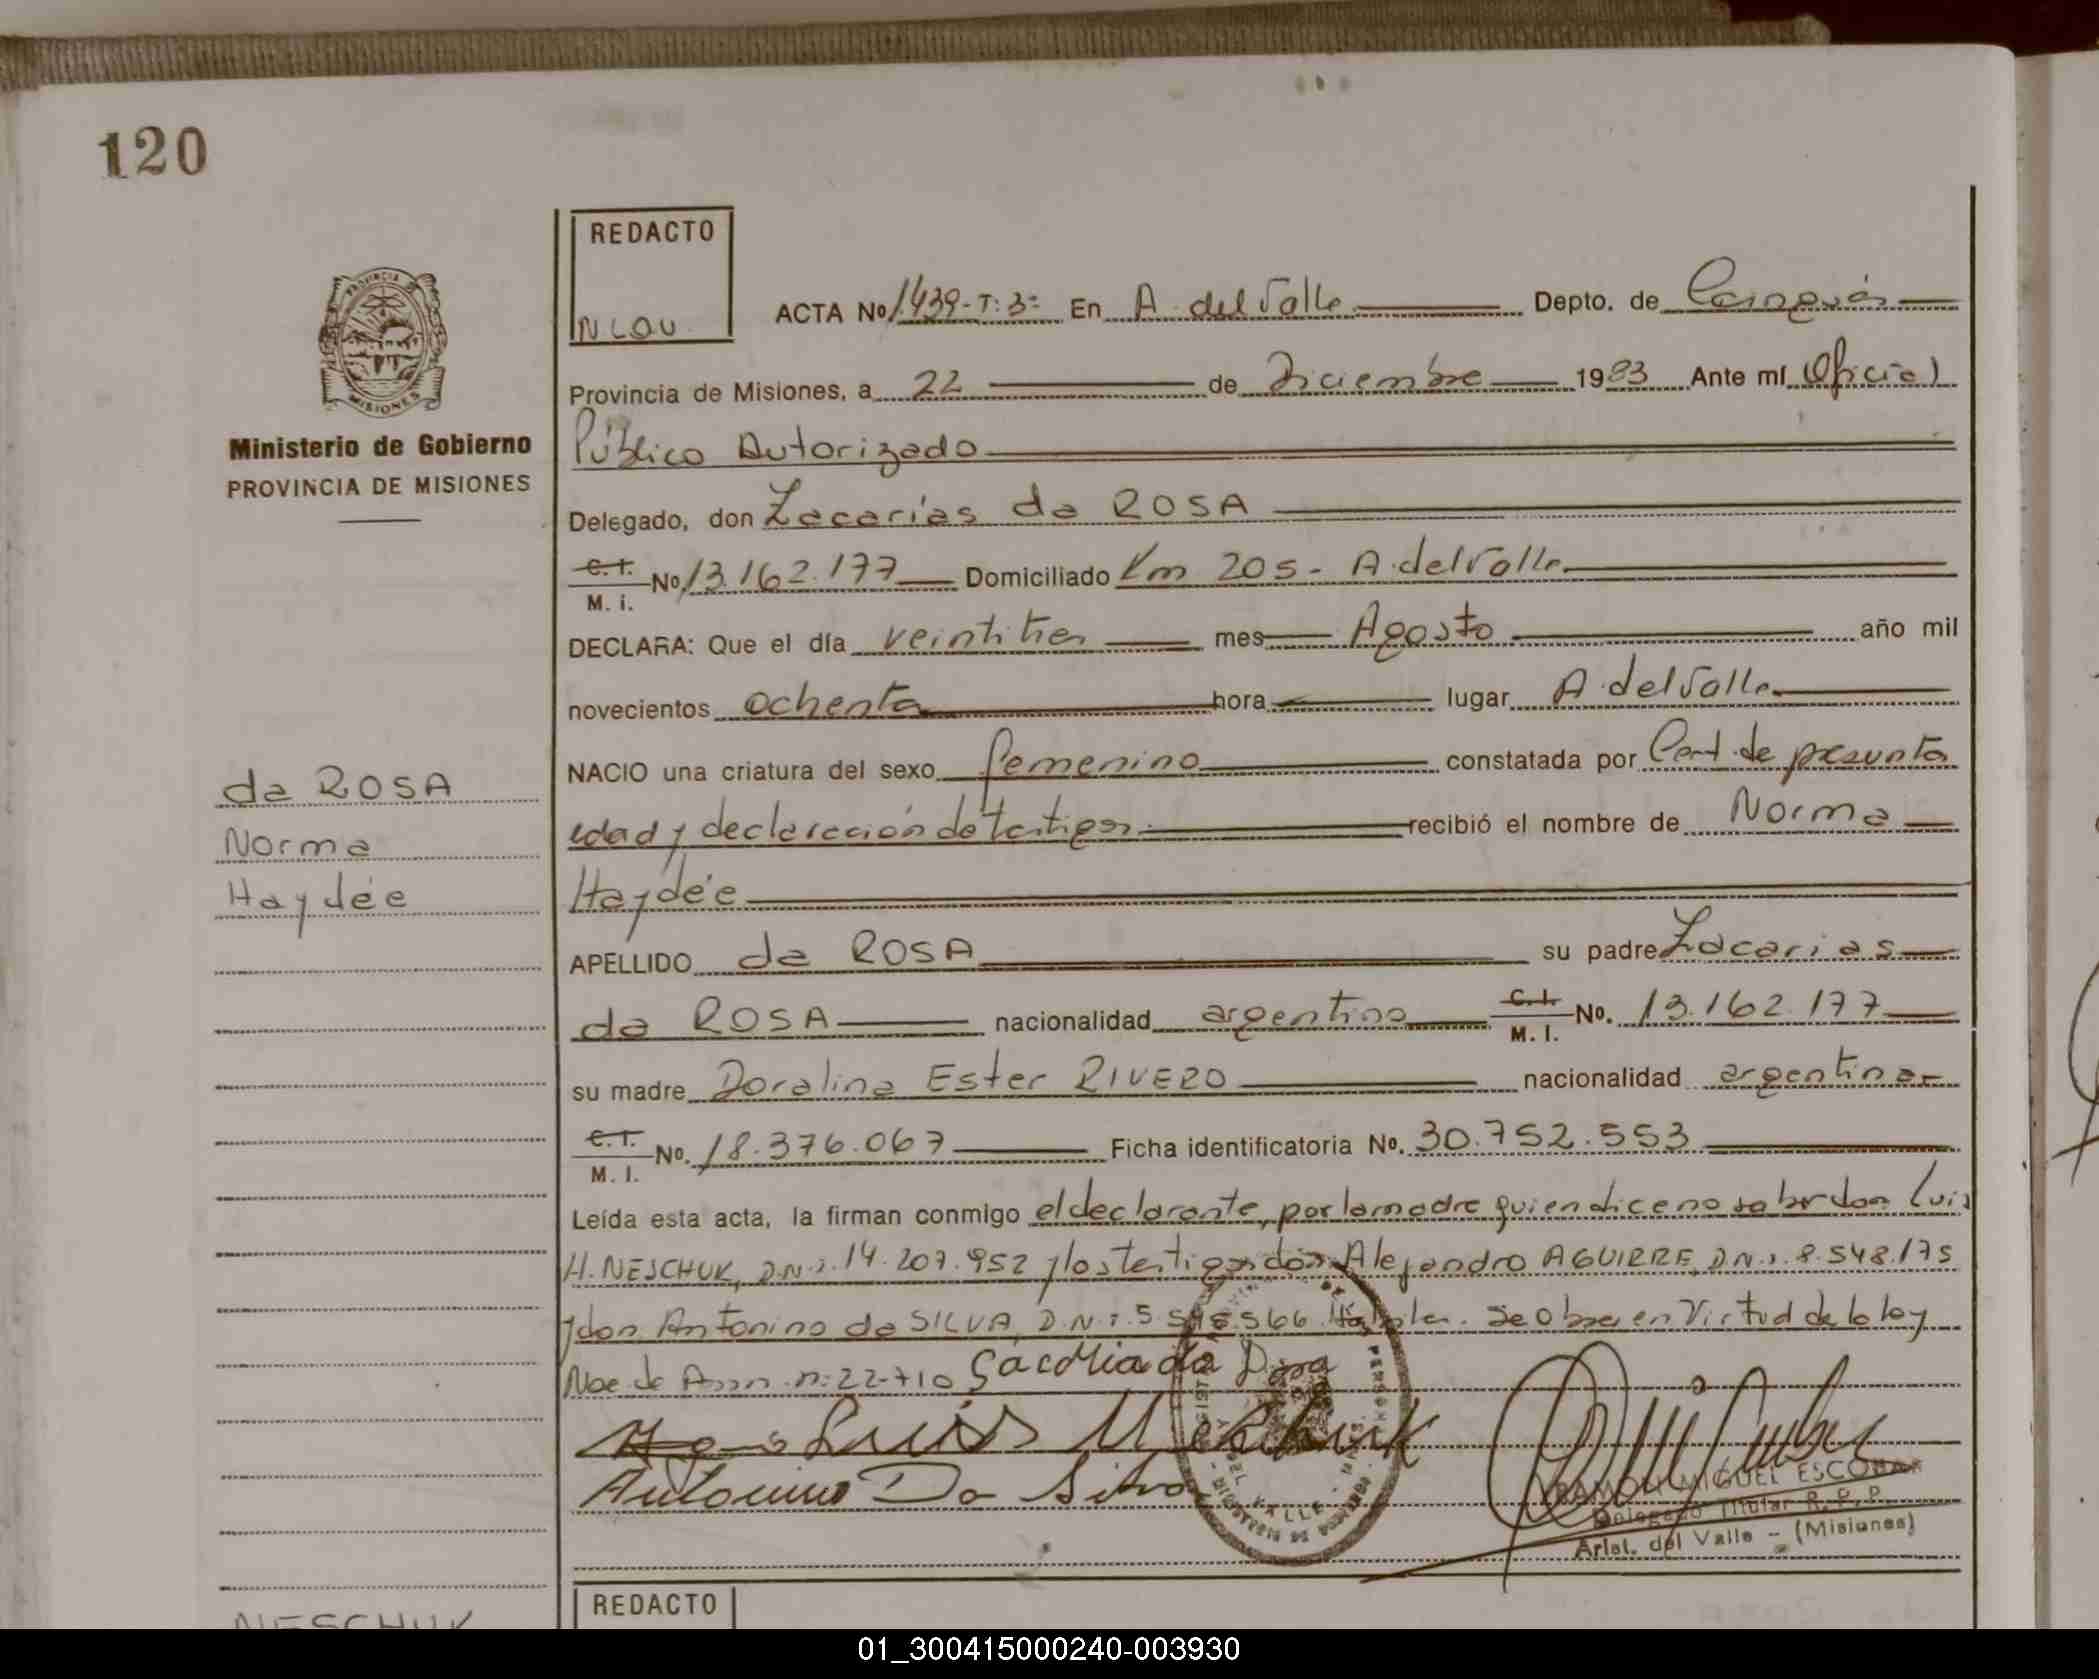 120
REDACTO
NLOU
ACTA Nº 1.439-T:3º En A. del Valle Depto. de Cainguás
PROVINCIA DE
MISIONES
Provincia de Misiones, a 22 de Diciembre 1983 Ante mí Oficial
Ministerio de Gobierno
Público Autorizado
PROVINCIA DE MISIONES
Delegado, don Zacarías da ROSA
C.I. M. i. Nº 13.162.177 Domiciliado Km 205- A. del Valle
DECLARA: Que el día veintitres mes Agosto año mil
novecientos ochenta hora lugar A. del Valle
NACIO una criatura del sexo femenino constatada por Cert. de presunta
da ROSA
edad y declaración de testigos. recibió el nombre de Norma
Norma
Haydée
Haydée
APELLIDO da ROSA su padre Zacarias
da ROSA nacionalidad argentino C.I. M. I. Nº. 13.162.177
su madre Doralina Ester RIVERO nacionalidad argentina-
C.I. M. I. Nº. 18.376.067 Ficha identificatoria Nº. 30.752.553
Leída esta acta, la firman conmigo el declarante, por la madre quien dice no saber don Luis
H. NESCHUK, D.N.i. 14.207.952 y los testigos don Alejandro AGUIRRE, D.N.i. 8.548.175
y don Antonino da SILVA, D.N.i. 5. .566. Se Obra en Virtud de la ley
Nac. de n: 22-710 da
Luis
Antonino Da Silva
DEL VALLE
RAMON MIGUEL ESCOBAR
Delegado Titular R. P. P.
Arist. del Valle - (Misiones)
REDACTO
NESCHUK
01_300415000240-003930